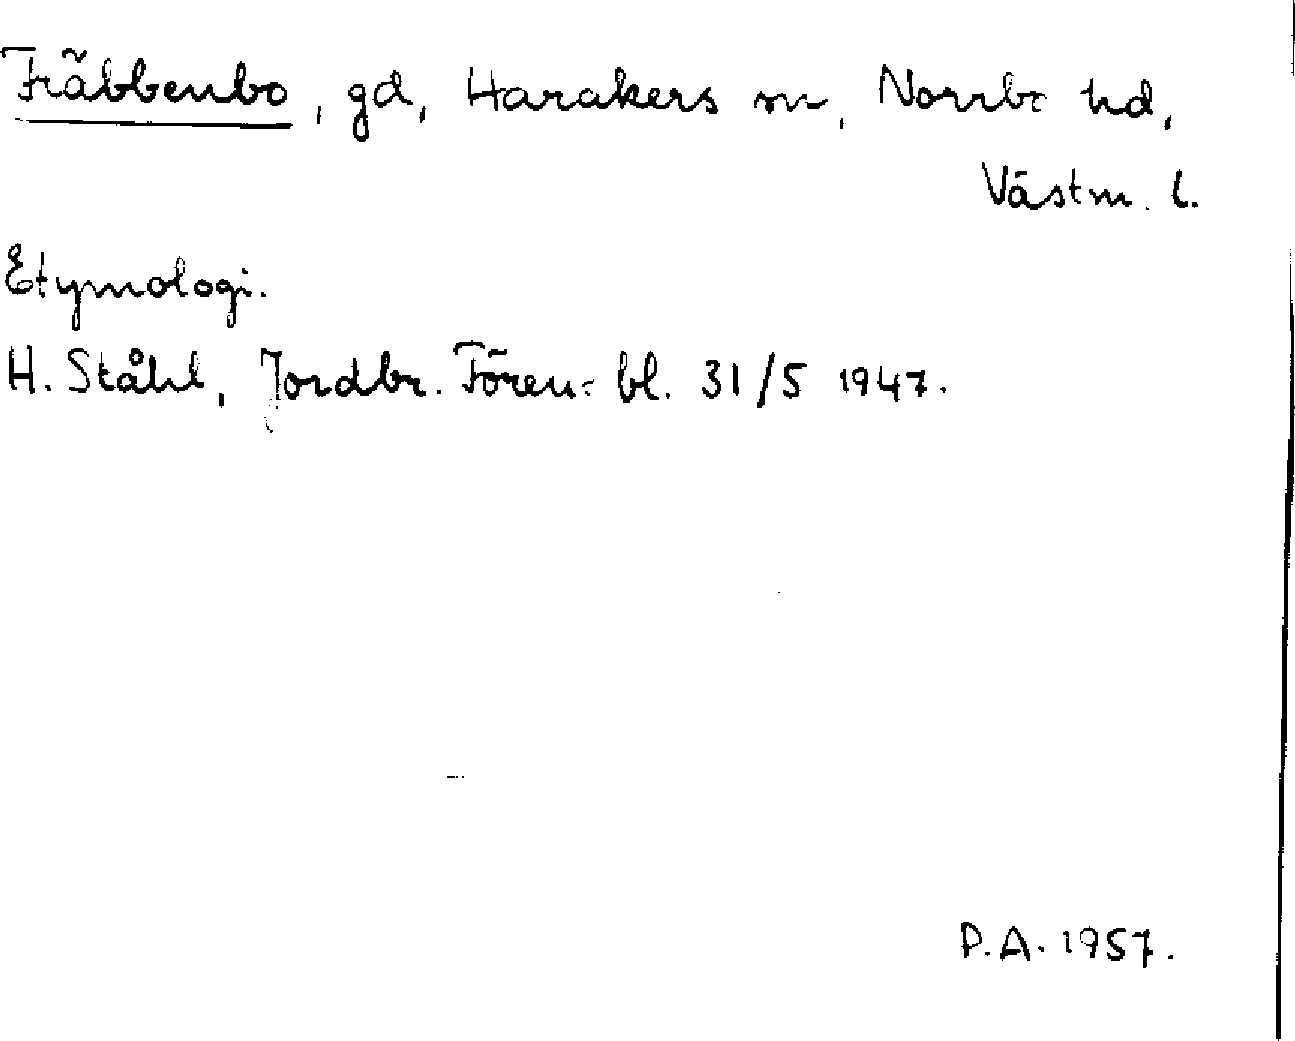 Fräbbenbo, gd, Harakers sn, Norrbo hd,
Västm. l.
Etymologi.
H. Ståhl, Jordbr. Fören:s bl. 31/5 1947.
P.A. 1957.